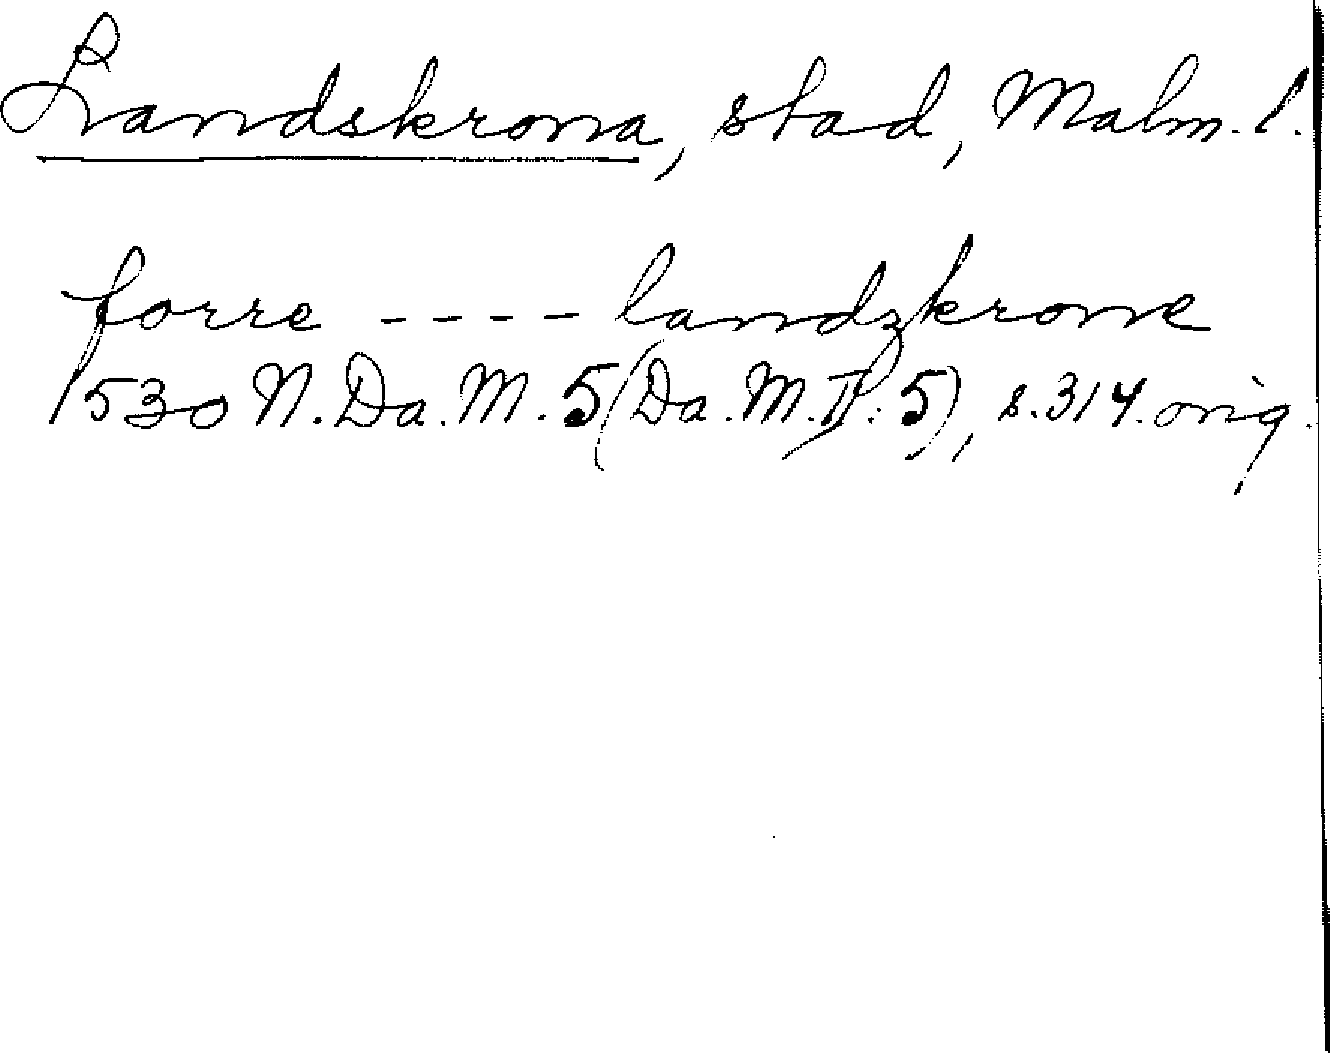 Landskrona, stad, Malm. l.
forre ---- landzkrone
1530 N. Da. M. 5 (Da. M. II: 5), s. 314. orig.